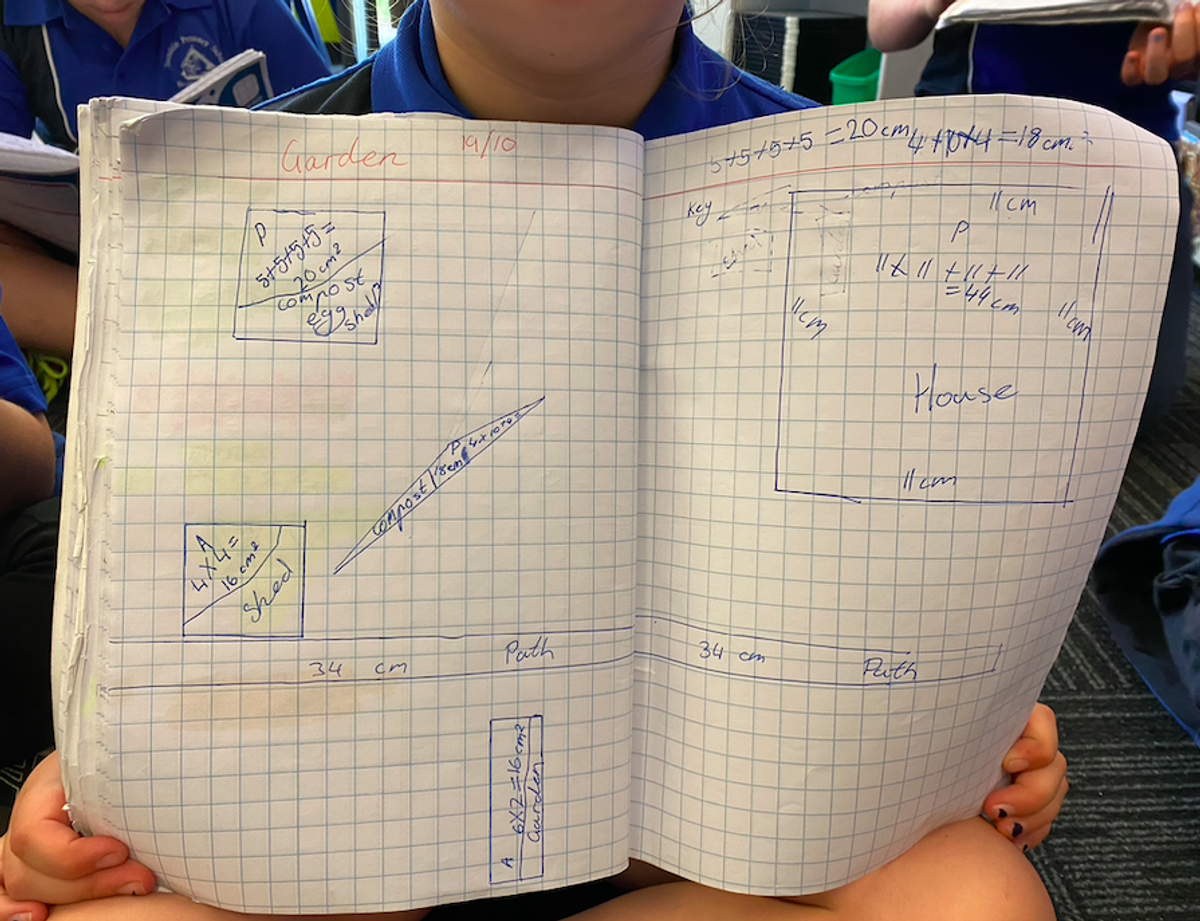 Garden 19/10
P
5+5+5+5=
20 cm²
compost
egg
shells
P
compost 18cm
A
4X4=
16 cm²
Shed
34 cm Path
A 6X2=16cm²
Garden
5+5+5+5 =20cm
=18cm²
Key
11 cm
P
+11+11
=44cm
11cm
11cm
House
11cm
34 cm Path